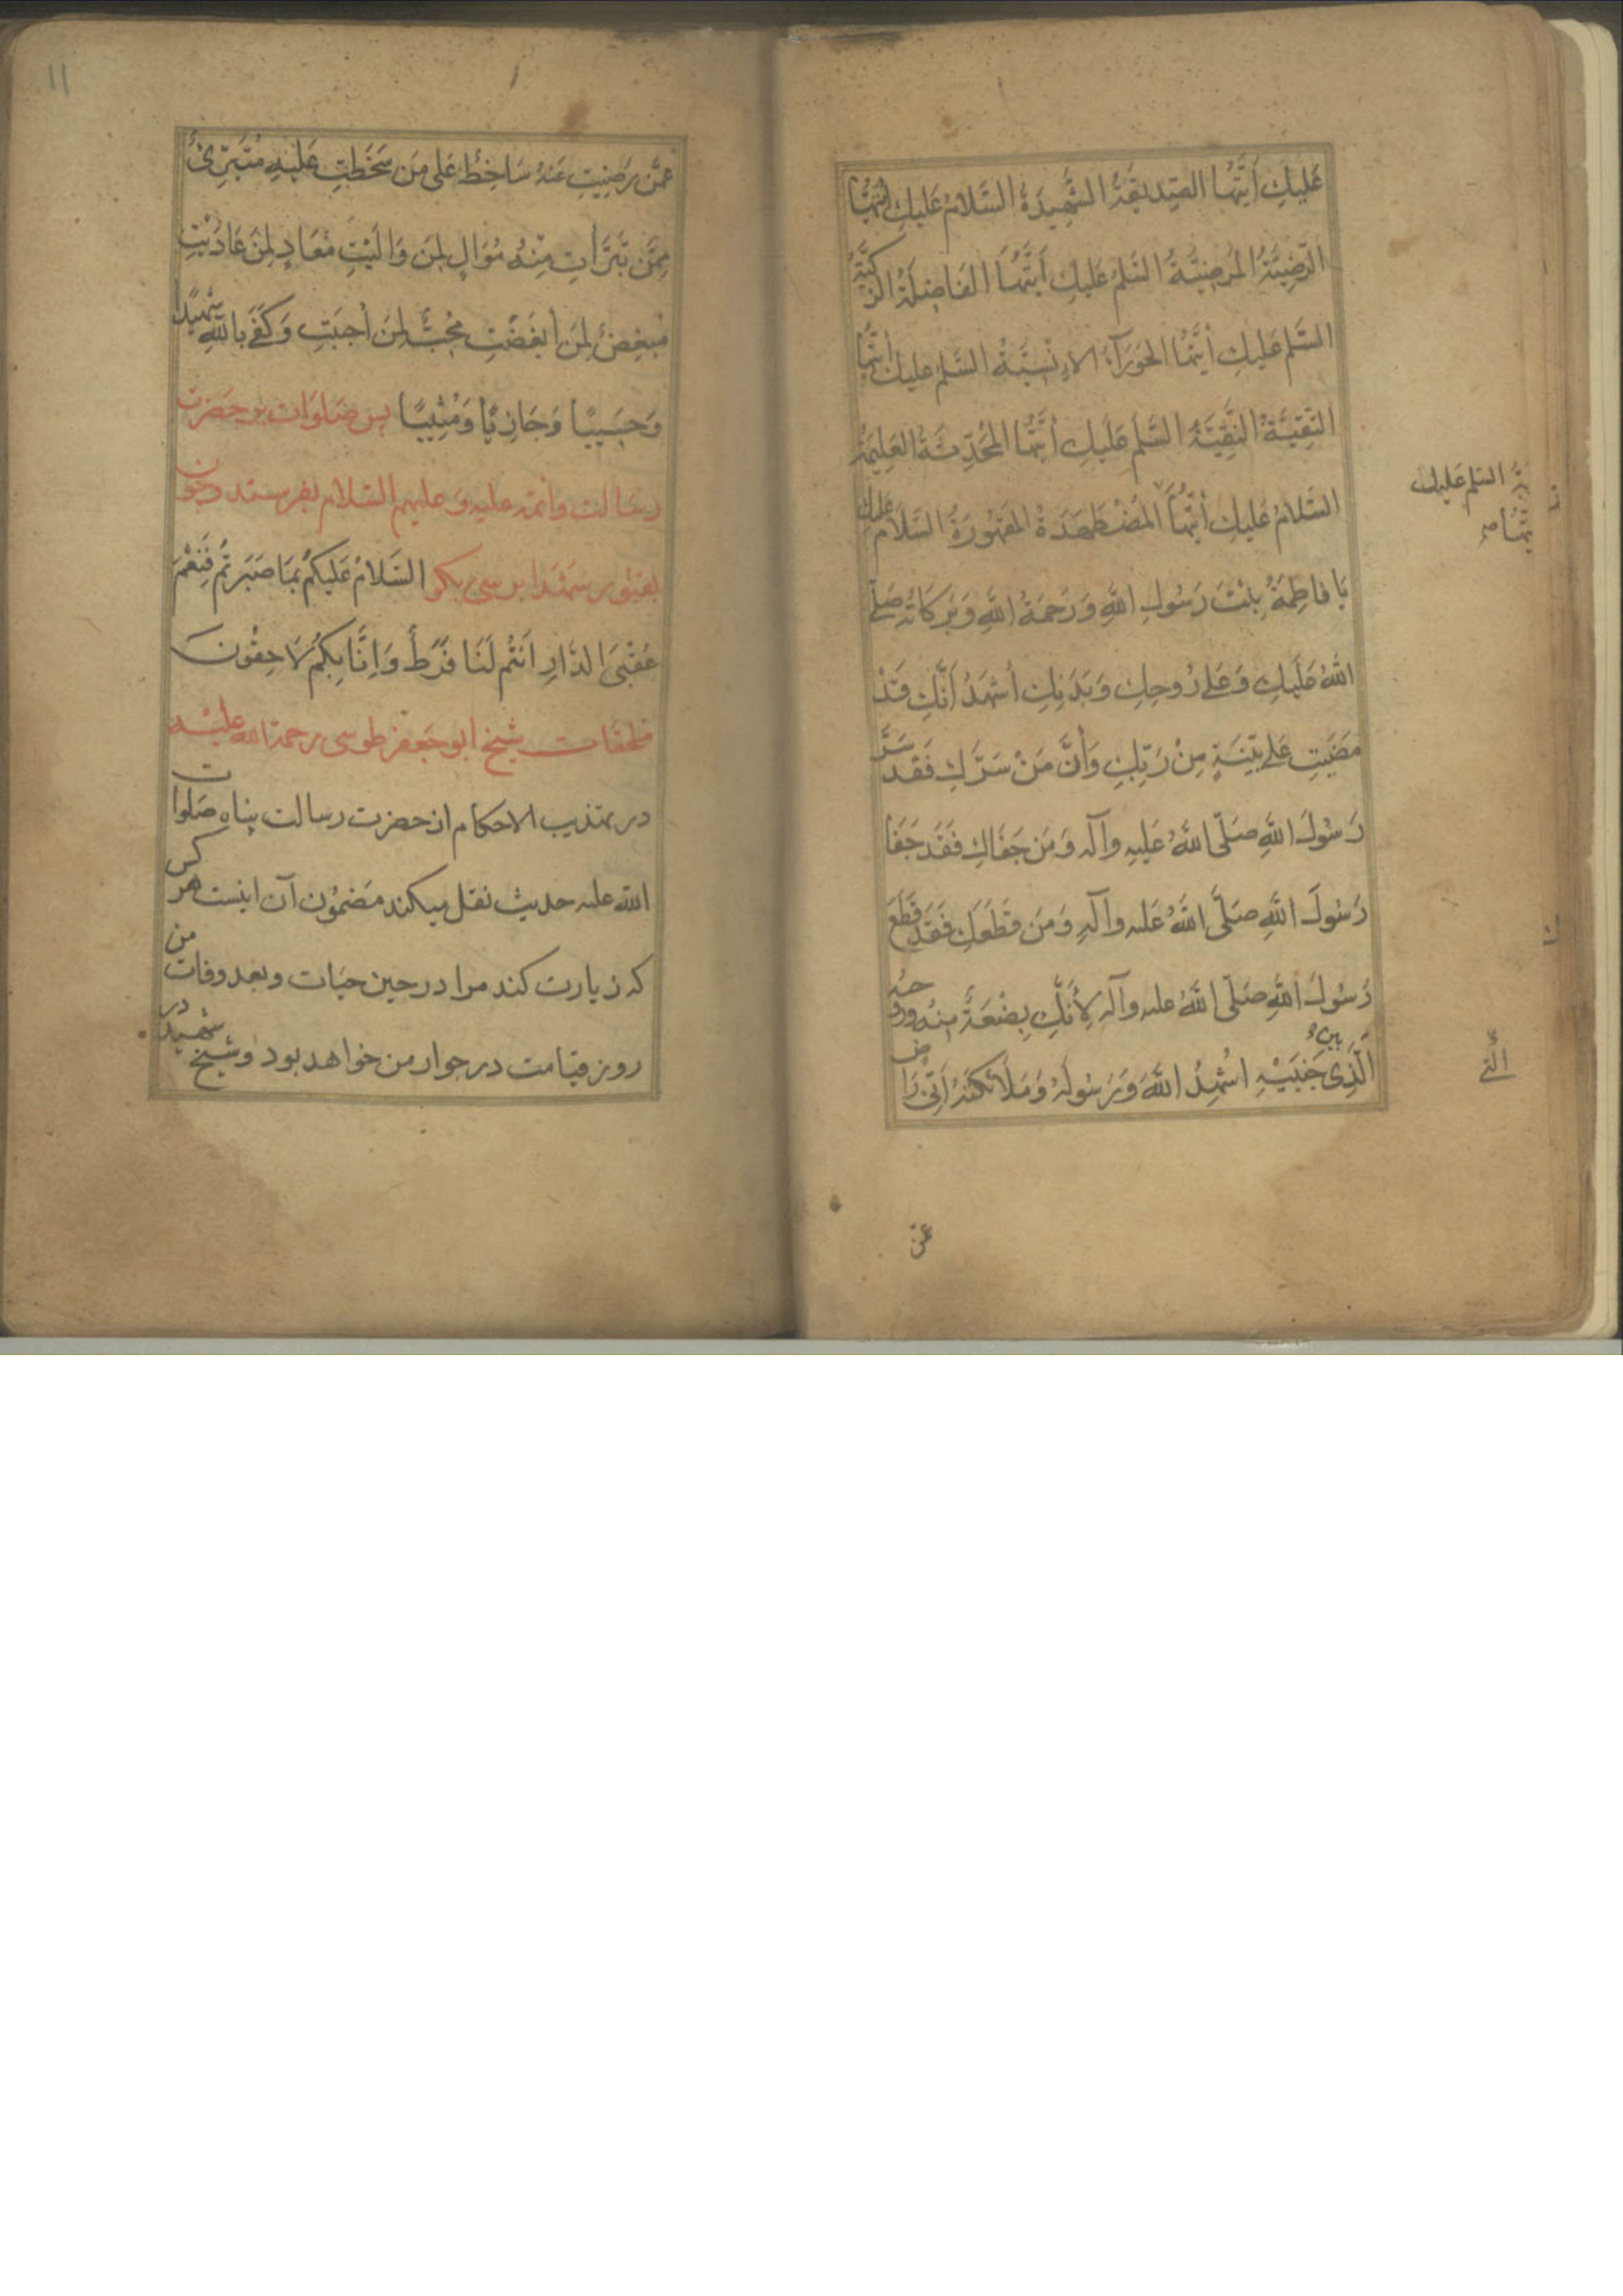 عَلَيكِ اَيَّتُهَا الصِّدِيقَةُ الشَّهِيدَةُ السَّلَامُ عَلَيكِ اَيَّتُهَا
الرَّضِيَّةُ المَرضِيَّةُ السَّلمُ عَلَيكِ اَيَّتُهَا الفَاضِلَةُ الزَّكِيَّةُ
السَّلمُ عَلَيكِ اَيَّتُهَا الحَورَآءُ الاِنْسِيَّةُ السَّلمُ عليك اَيَّتُهَا
التَّقِيَّةُ النَّقِيَّةُ السَّلمُ عَلَيكِ اَيَّتُهَا المُحَدِّثَةُ العَلِيمَةُ
السَّلامُ عَلَيكِ اَيَّتُهَا المُضْطَهَدَةُ المَقهُورَةُ السَّلَامُ عَلَيكِ
يَا فَاطِمَةُ بِنْتَ رَسُولِ اللهِ وَرَحمَةُ اللهِ وَبَرَكَاتُه صَلَّى
اللهُ عَلَيكِ وَعَلى رُوحِكِ وَبَدَنِكِ اَشهَدُ اَنَّكِ قَدْ
مَضَيتِ عَلى بَيِّنَةٍ مِنْ رَبِّكِ وَاَنَّ مَنْ سَرَّكِ فَقَد سَرَّ
رَسُولَ اللهِ صَلَّى اللهُ عَلَيهِ وآله وَمَن جَفَاكِ فَقَد جَفَا
رَسُولَ اللهِ صَلَّى اللهُ عَليه وآلهِ وَمَن قَطَعَكِ فَقَد قَطَعَ
رَسُولَ اللهِ صَلَّى اللهُ عليه وآله لِاَنَّكِ بِضْعَةٌ مِنهُ وروحه
الَّذِي بين جَنبَيْهِ اُشهِدُ اللهَ وَرَسُولَهُ وَمَلَائكَتَهُ اَنِّى رَاض
السّلم عَليك
الّتي
عمّن
١١
عَمَّن رَضِيتِ عَنهُ سَاخِطٌ عَلى مَن سَخَطتِ عَلَيهِ مُتَبَرِّئٌ
مِمَّن تَبَرَّأتِ مِنْهُ مُوَالٍ لِمَن وَالَيْتِ مُعَادٍ لِمَن عَادَيْتِ
مُبغِضٌ لِمَن اَبغَضْتِ مُحِبٌّ لِمَن اَحبَبتِ وَكَفى بِاللهِ شَهِيدًا
وَحَسِيبًا وَجَازِيًا وَمُثِيبًا پس صَلوَات بر حَضرت
رسَالت وائمّه عليه وَ عليهم السّلام بفرستد و چون
بقبور شهدا برسى بكو السَّلَامُ عَلَيكُم بِمَا صَبَرتُم فَنِعْمَ
عُقْبَى الدَّارِ اَنتُم لَنَا فَرَطٌ وَاِنَّا بِكُم لَاحِقُونَ
ملحقات شيخ ابو جَعفر طوسى رحمة الله عليه
در تهذيب الاحكام از حضرت رسالت پناه صَلوات
الله عليه حديث نقل ميكند مَضمُون آن اينست هر كس
كه زيارت كند مرا در حين حيَات و بعد وفات من
روز قيامت در جوار من خواهد بود و شيخ شهيد در